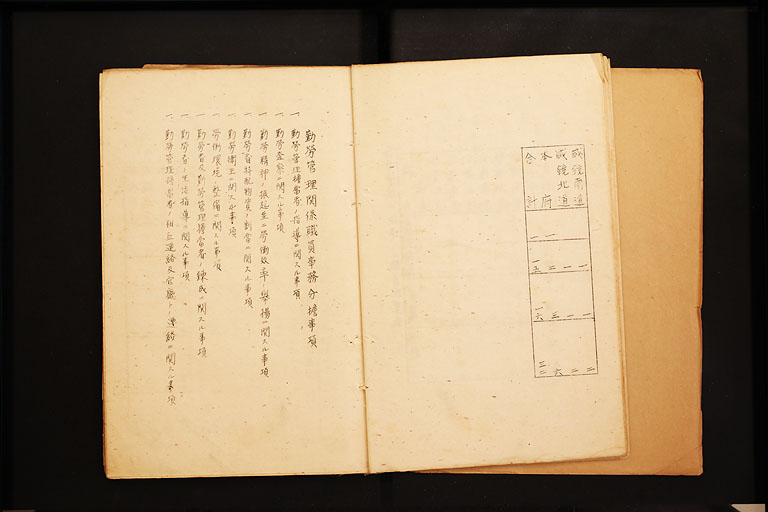 咸鏡南道 一 一 二
咸鏡北道 一 一 二
本府 一 二 三 六
合計 一 一五 一六 三二
勤労管理関係職員事務分擔事項
一、勤労管理擔当者ノ指導ニ関スル事項
一、勤労査察ニ関スル事項
一、勤労精神ノ振起並ニ労働效率ノ擧揚ニ関スル事項
一、勤労者特配物資ノ割当ニ関スル事項
一、勤労衛生ニ関スル事項
一、労働環境ノ整備ニ関スル事項
一、勤労者及勤労管理擔当者ノ錬成ニ関スル事項
一、勤労者ノ生活指導ニ関スル事項
一、勤労管理擔当者ノ相互連絡及官廳トノ連絡ニ関スル事項